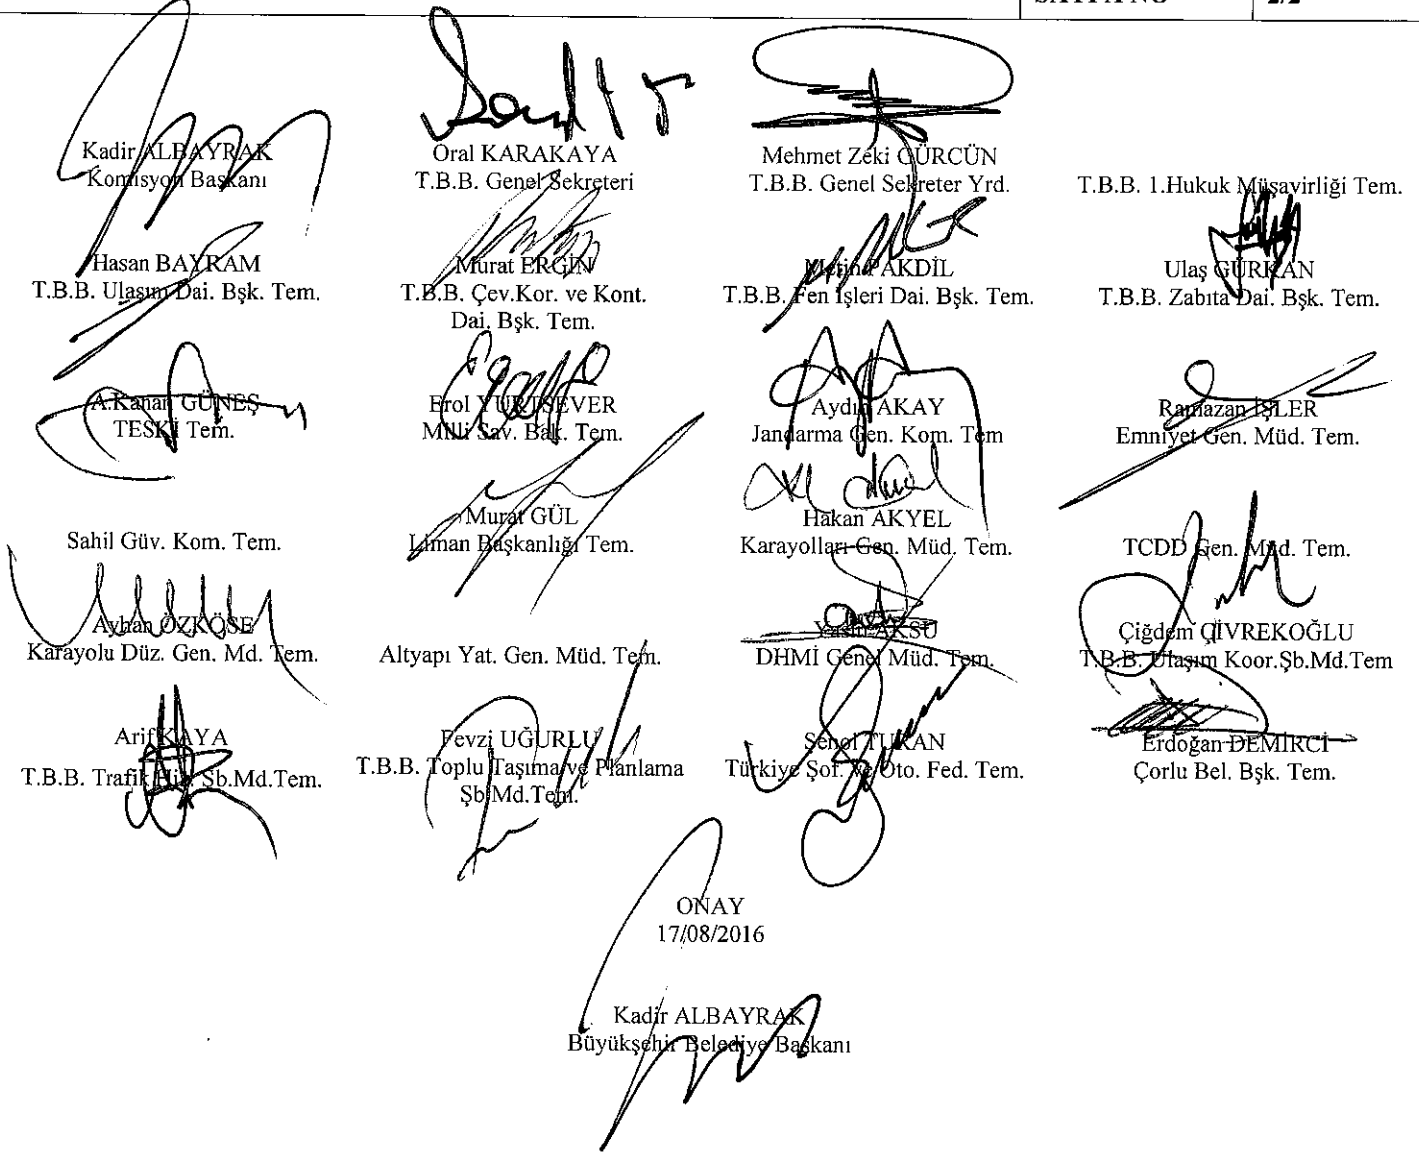 SAYFA NO 2/2
Kadir ALBAYRAK
Komisyon Başkanı
Oral KARAKAYA
T.B.B. Genel Sekreteri
Mehmet Zeki GÜRCÜN
T.B.B. Genel Sekreter Yrd.
T.B.B. 1.Hukuk Müşavirliği Tem.
Hasan BAYRAM
T.B.B. Ulaşım Dai. Bşk. Tem.
Murat ERGİN
T.B.B. Çev.Kor. ve Kont.
Dai. Bşk. Tem.
Metin PAKDİL
T.B.B. Fen İşleri Dai. Bşk. Tem.
Ulaş GÜRKAN
T.B.B. Zabıta Dai. Bşk. Tem.
A.Kanan GÜNEŞ
TESKİ Tem.
Erol YURTSEVER
Milli Sav. Bak. Tem.
Aydın AKAY
Jandarma Gen. Kom. Tem
Ramazan İŞLER
Emniyet Gen. Müd. Tem.
Sahil Güv. Kom. Tem.
Murat GÜL
Liman Başkanlığı Tem.
Hakan AKYEL
Karayolları Gen. Müd. Tem.
TCDD Gen. Müd. Tem.
Ayhan ÖZKÖSE
Karayolu Düz. Gen. Md. Tem.
Altyapı Yat. Gen. Müd. Tem.
AKSU
DHMİ Genel Müd. Tem.
Çiğdem ÇİVREKOĞLU
T.B.B. Ulaşım Koor.Şb.Md.Tem
Arif KAYA
T.B.B. Trafik Şb.Md.Tem.
Fevzi UĞURLU
T.B.B. Toplu Taşıma ve Planlama
Şb.Md.Tem.
Şenol TURAN
Türkiye Şof. ve Oto. Fed. Tem.
Erdoğan DEMİRCİ
Çorlu Bel. Bşk. Tem.
ONAY
17/08/2016
Kadir ALBAYRAK
Büyükşehir Belediye Başkanı